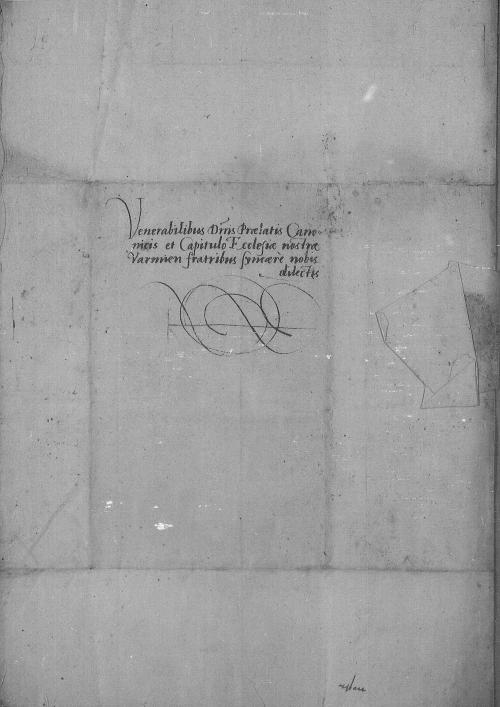 Venerabilibus Dnis Prælatis Cano-
nicis et Capitulo Ecclesiæ nostræ
Varmien fratribus syncere nobis
dilectis